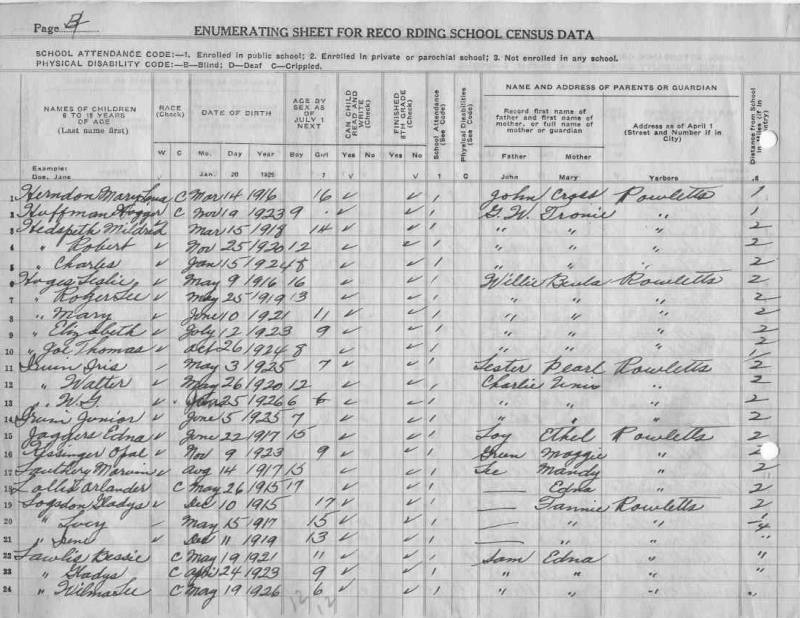 Page
ENUMERATING SHEET FOR RECO RDING SCHOOL CENSUS DATA
SCHOOL ATTENDANCE CODE:—1. Enrolled in public school; 2. Enrolled in private or parochial school; 3. Not enrolled in any school.
PHYSICAL DISABILITY CODE:—B—Blind; D—Deaf C—Crippled.
NAMES OF CHILDREN 6 TO 18 YEARS OF AGE (Last name first) RACE (Check) DATE OF BIRTH AGE BY SEX AS OF JULY 1 NEXT CAN CHILD READ AND WRITE (Check) FINISHED 8TH GRADE (Check) School Attendance (See Code) Physical Disabilities (See Code) NAME AND ADDRESS OF PARENTS OR GUARDIAN Distance from School
Record first name of father and first name of mother, or full name of mother or guardian Address as of April 1 (Street and Number if in City)
W C Mo. Day Year Boy Girl Yes No Yes No Father Mother
Example: Doe, Jane √ JAN. 20 7 √ √ 1 C John Mary Yarboro
1 Herndon Mary C Mar 14 1916 16 √ √ 1 John Cross Rowletts 1
2 Huffman C Nov 19 1923 9 √ √ 1 G.W. " 1
3 Hedspeth Mildred Mar 15 1918 14 √ √ 1 " " " 2
4 " Robert √ Nov 25 1920 12 √ √ 1 " " " 2
5 " Charles √ Jan 15 1924 8 √ √ 1 " " " 2
6 Leslie √ May 9 1916 16 √ √ 1 Willie Beula Rowletts 2
7 " Roger Lee √ May 25 1919 13 √ √ 1 " " " 2
8 " Mary √ June 10 1921 11 √ √ 1 " " " 2
9 " Elizabeth √ July 12 1923 9 √ √ 1 " " " 2
10 " Joe Thomas √ Oct 26 1924 8 √ √ 1 " " "
11 Iris √ May 3 1925 7 √ √ 1 Lester Pearl Rowletts 2
12 " Walter √ May 26 1920 12 √ √ 1 Charlie " 2
13 " W G √ 25 1926 6 √ √ 1 " " " 2
14 Junior √ June 5 1925 7 √ √ 1 " " " 2
15 Jaggers Edna √ June 22 1917 15 √ √ 1 Ethel Rowletts 2
16 Opal √ Nov 9 1923 9 √ √ 1 Green Maggie " 2
17 √ Aug 14 1917 15 √ √ 1 Lee Mandy " 2
18 C May 26 1915 17 √ √ 1 — Edna " 2
19 Logsdon Gladys √ Dec 10 1915 17 √ √ 1 — Rowletts 2
20 " Ivory √ May 15 1917 15 √ √ 1 — " "
21 " Irene √ Dec 11 1919 13 √ √ 1 — " " "
22 Bessie C May 19 1921 11 √ √ 1 Sam Edna " "
23 " Gladys C April 24 1923 9 √ √ 1 " " " "
24 " Wilma Lee C May 19 1926 6 √ √ 1 " "
12 12